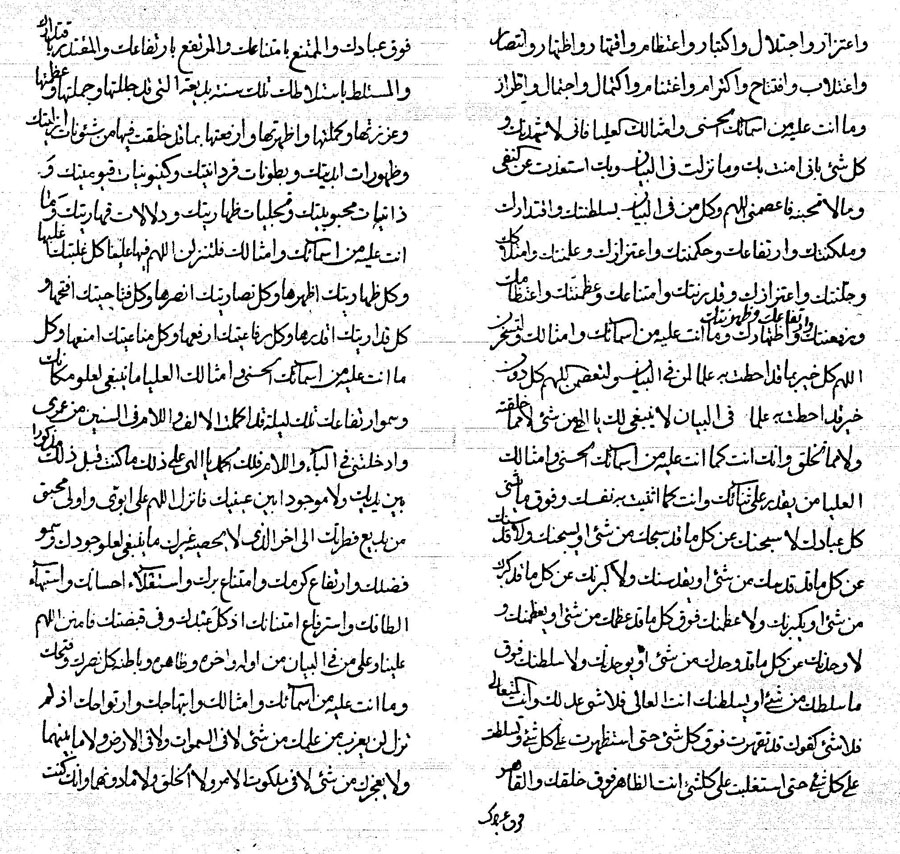 واعتزاز واجتلال واكتبار واعتظام واقتهار واظتهار وانتصار
واغتلاب وافتتاح واكترام واغتنام واكتمال واجتمال واطراز
وما انت عليه من اسمائك الحسنى وامثالك العليا فانى لاشهدنك و
كل شئ بانى امنت بك وما نزلت فى البيان وبك استعذت عن كنفى
وما لا تحبنه فاعصمنى اللهم وكل من فى البيان بسلطنتك واقتدارك
ومليكتك وارتفاعك وحكمتك واعتزازك وعلمتك وامتلاكك
وجللتك واعتزازك وقدرتك وامتناعك وعظمتك واعتظامك
ورفعتك وارتفاعك وظهرتك واظتهارك وما انت عليه من اسمائك وامثالك ولتسخرن
اللهم كل خير بما قد احطت به علما لمن فى البيان ولتعصمن اللهم كل دون
خير قد احطت به علما فى البيان لا ينبغى لك يا الهى من شئ لا مما خلقته
ولا مما تخلق وانك انت كما انت عليه من اسمائك الحسنى وامثالك
العليا من يقدر على ثنائك وانت كما اثنيت به نفسك وفوق ما يثنى
كل عبادك لاسبحنك عن كل ما قد سبحك من شئ او يسبحنك ولاقدسنك
عن كل ما قد قدسك من شئ او يقدسنك ولاكبرنك عن كل ما قد كبرك
من شئ او يكبرنك ولاعظمنك فوق كل ما قد عظمك من شئ او يعظمنك و
لاوحدنك عن كل ما قد وحدك من شئ او يوحدنك ولاسلطنك فوق
ما سلطك من شئ او يسلطنك انت العالى فلا شئ عدلك وانت المتعالى
فلا شئ كفوك قد تقهرت فوق كل شئ حتى استظهرت على كل شئ وتسلطت
على كل شئ حتى استغلبت على كلشئ انت الظاهر فوق خلقك والقاهر
فوق عبادك
فوق عبادك والممتنع بامتناعك والمرتفع بارتفاعك والمقتدر باقتدارك
والمستلط باستلاطك تلك سنة بديعة التى قد جللتها وجملتها وعظمتها
وعززتها وكملتها واظهرتها وارفعتها بما قد خلقت فيها من شئونات ازليتك
وظهورات ابديتك وبطونات فردانيتك وكينونيات قيوميتك و
ذاتيات محبوبيتك ومجليات ظهاريتك ودلالات قهاريتك وبما
انت عليه من اسمائك وامثالك فلتنزلن اللهم فيها علينا كل غلبتك اغلبها
وكل ظهاريتك اظهرها وكل نصاريتك انصرها وكل فتاحيتك افتحها و
كل قداريتك اقدرها وكل رفاعيتك ارفعها وكل مناعيتك امنعها وكل
ما انت عليه من اسمائك الحسنى وامثالك العليا ما ينبغى لعلو مكانتك
وسمو ارتفاعك تلك ليلة قد اكملت الالف واللام فى السنين من عمرى
وادخلتنى فى الباء واللام فلك الحمد يا الهى على ذلك ما كنت قبل ذلك مذكورا
بين يديك ولا موجودا بين عينيك فانزل اللهم على ابوى واولى محبتى
من بديع فطرتك الى اخر الذى لا يحصيه غيرك ما ينبغى لعلو جودك وسمو
فضلك وارتفاع كرمك وامتناع برك واستقلاء احسانك واستهاء
الطافك واسترفاع امتنانك اذ كل عبدك وفى قبضتك فامنن اللهم
علينا وعلى من فى البيان من اوله واخره وظاهره وباطنه كل نصرك وفتحك
وما انت عليه من اسمائك وامثالك وابتهاجك وارتواحك اذ لم
تزل لن يعزب من علمك من شئ لا فى السموات ولا فى الارض ولا ما بينهما
ولا يعجزك من شئ لا فى ملكوت الامر ولا الخلق ولا ما دونهما وانك كنت